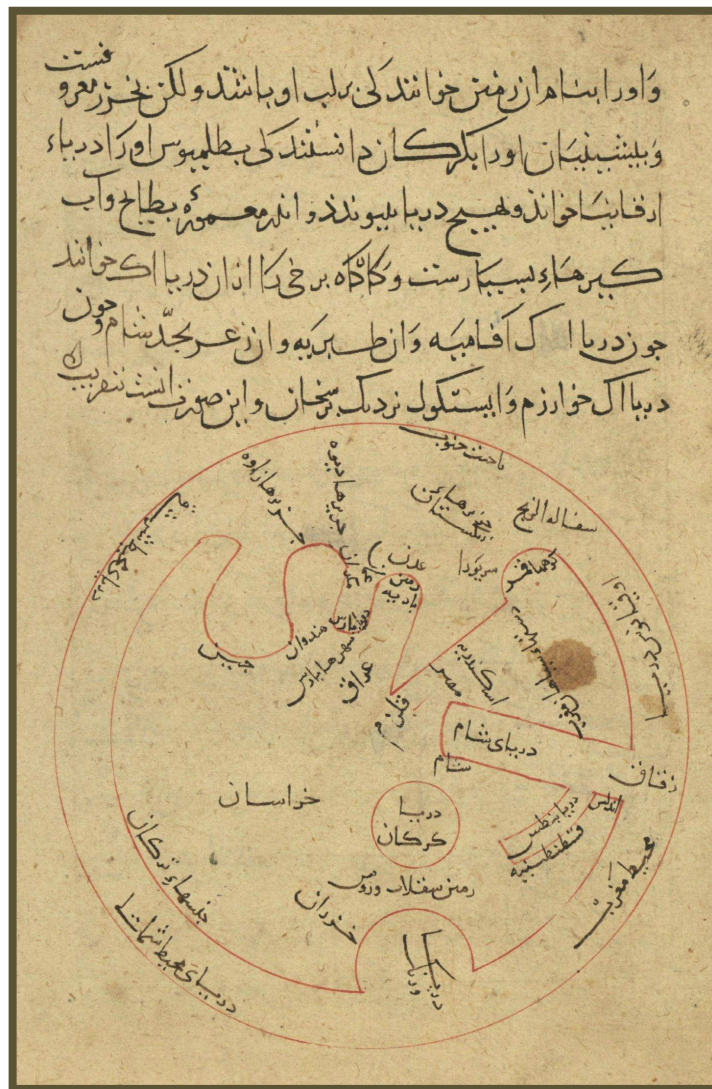 و او را بنام آن زمین خوانند کی بر لب او باشند ولکن بخزر معروفست
و پیشینیان او را بکرکان دانستند کی بطلمیوس او را دریاء
ارقانیا خواند و بهیچ دریا نپیوندد و اندر معموره بطایح و آب
کیرهاء بسیارست و کاه کاه برخی را ازان دریااک خوانند
جون دریااک افامیه و ان طبریه و ان زغر بحدّ شام و جون
دریااک خوارزم و ایسکول نزدیک برسخان و این صورت انست بتقریب
ناحیت جنوب
سفاله الزنج
جزیرهاء زنکستان
جزیرهاء دیبوه
جزیرها زاوه
سربودا
عدن
بادیه
مکران
هندوان
دریا پارس
عراق
قلزم
جین
اسکندریه
مصر
دریای شام
شام
زقاق
اندلس
دریا بنطس
قسطنطینیه
محیط مغربی
خراسان
دریا
کرکان
زمین سقلاب و روس
خزران
جنسهاء ترکان
دریای محیط شمالی
دریا
ورنک